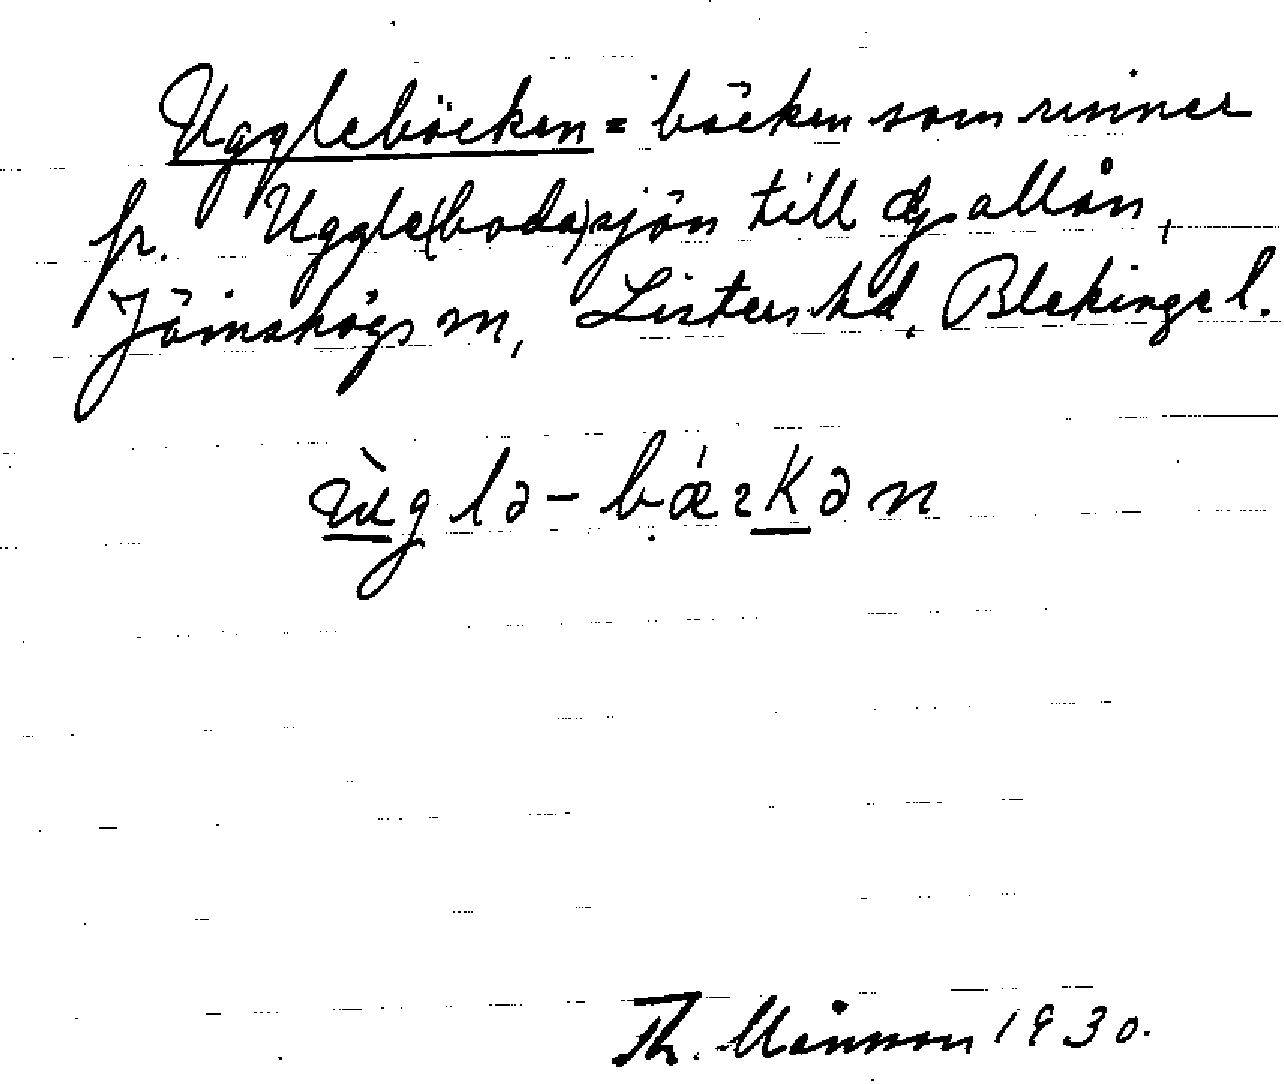 Uggleböcken = bäcken som rinner
fr. Uggle(boda)sjön till Gallån,
Jämshögs sn, Listers hd, Blekinge l.
ùglə-bǽɪkən
Th. Månsson 1930.